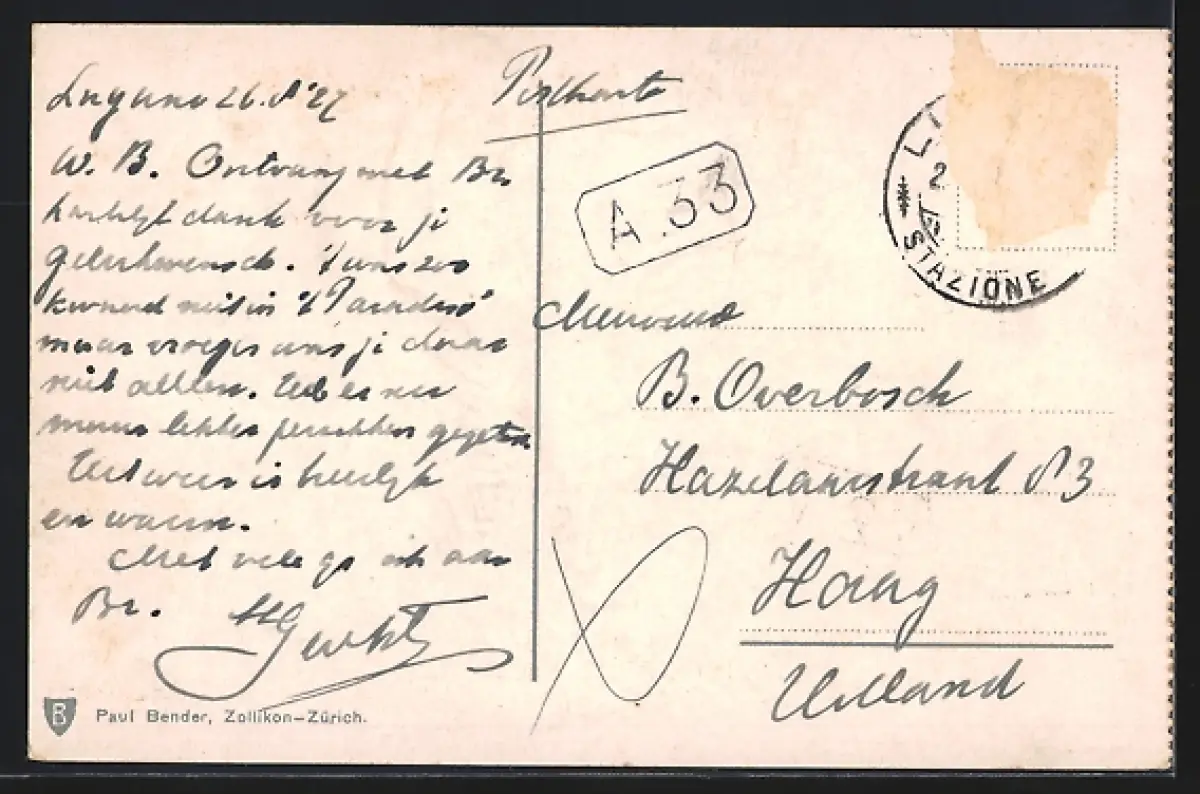 Lugano 26.8'27
W. B. Ontvang met Br.
hartelijk dank voor je
gelukwensch. 't was zoo
maar vroeger was je daar
niet alleen. Heb er nu
maar lekker gegeten.
Het weer is heerlijk
en warm.
Met vele gr ook aan
Br.
Postkarte
A.33
L
2
STAZIONE
Mevrouw
B. Overbosch
Hazelaarstraat 83
Haag
Holland
B
Paul Bender, Zollikon-Zürich.